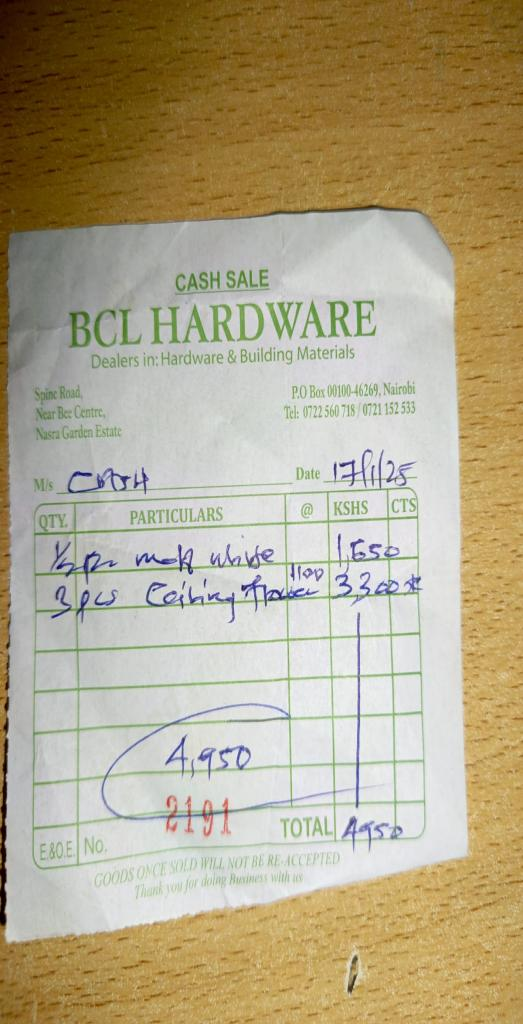 CASH SALE
BCL HARDWARE
Dealers in: Hardware & Building Materials
Spine Road,
Near Bee Centre,
Nasra Garden Estate
P.O Box 00100-46269, Nairobi
Tel: 0722 560 718 / 0721 152 533
M/s CASH Date 17/1/25
QTY. PARTICULARS @ KSHS CTS
white 1,650
3 pcs Ceiling flower 1100 3,300
4,950
2191
TOTAL 4950
E.&O.E. No.
GOODS ONCE SOLD WILL NOT BE RE-ACCEPTED
Thank you for doing Business with us